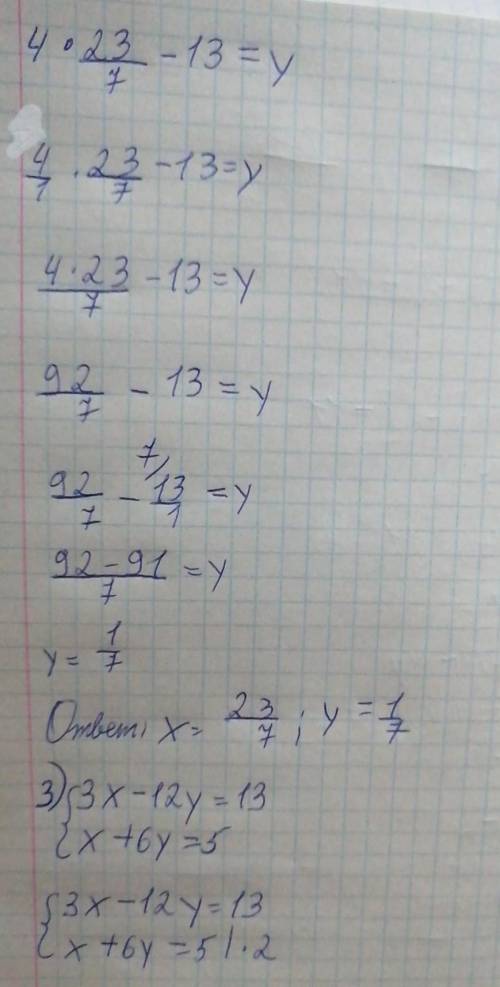 4 · 23/7 - 13 = y
4/1 · 23/7 - 13 = y
4 · 23/7 - 13 = y
92/7 - 13 = y
92/7 - 13/1 7/ = y
92 - 91/7 = y
y = 1/7
Ответ: x = 23/7 ; y = 1/7
3) { 3x - 12y = 13
{ x + 6y = 5
{ 3x - 12y = 13
{ x + 6y = 5 | · 2